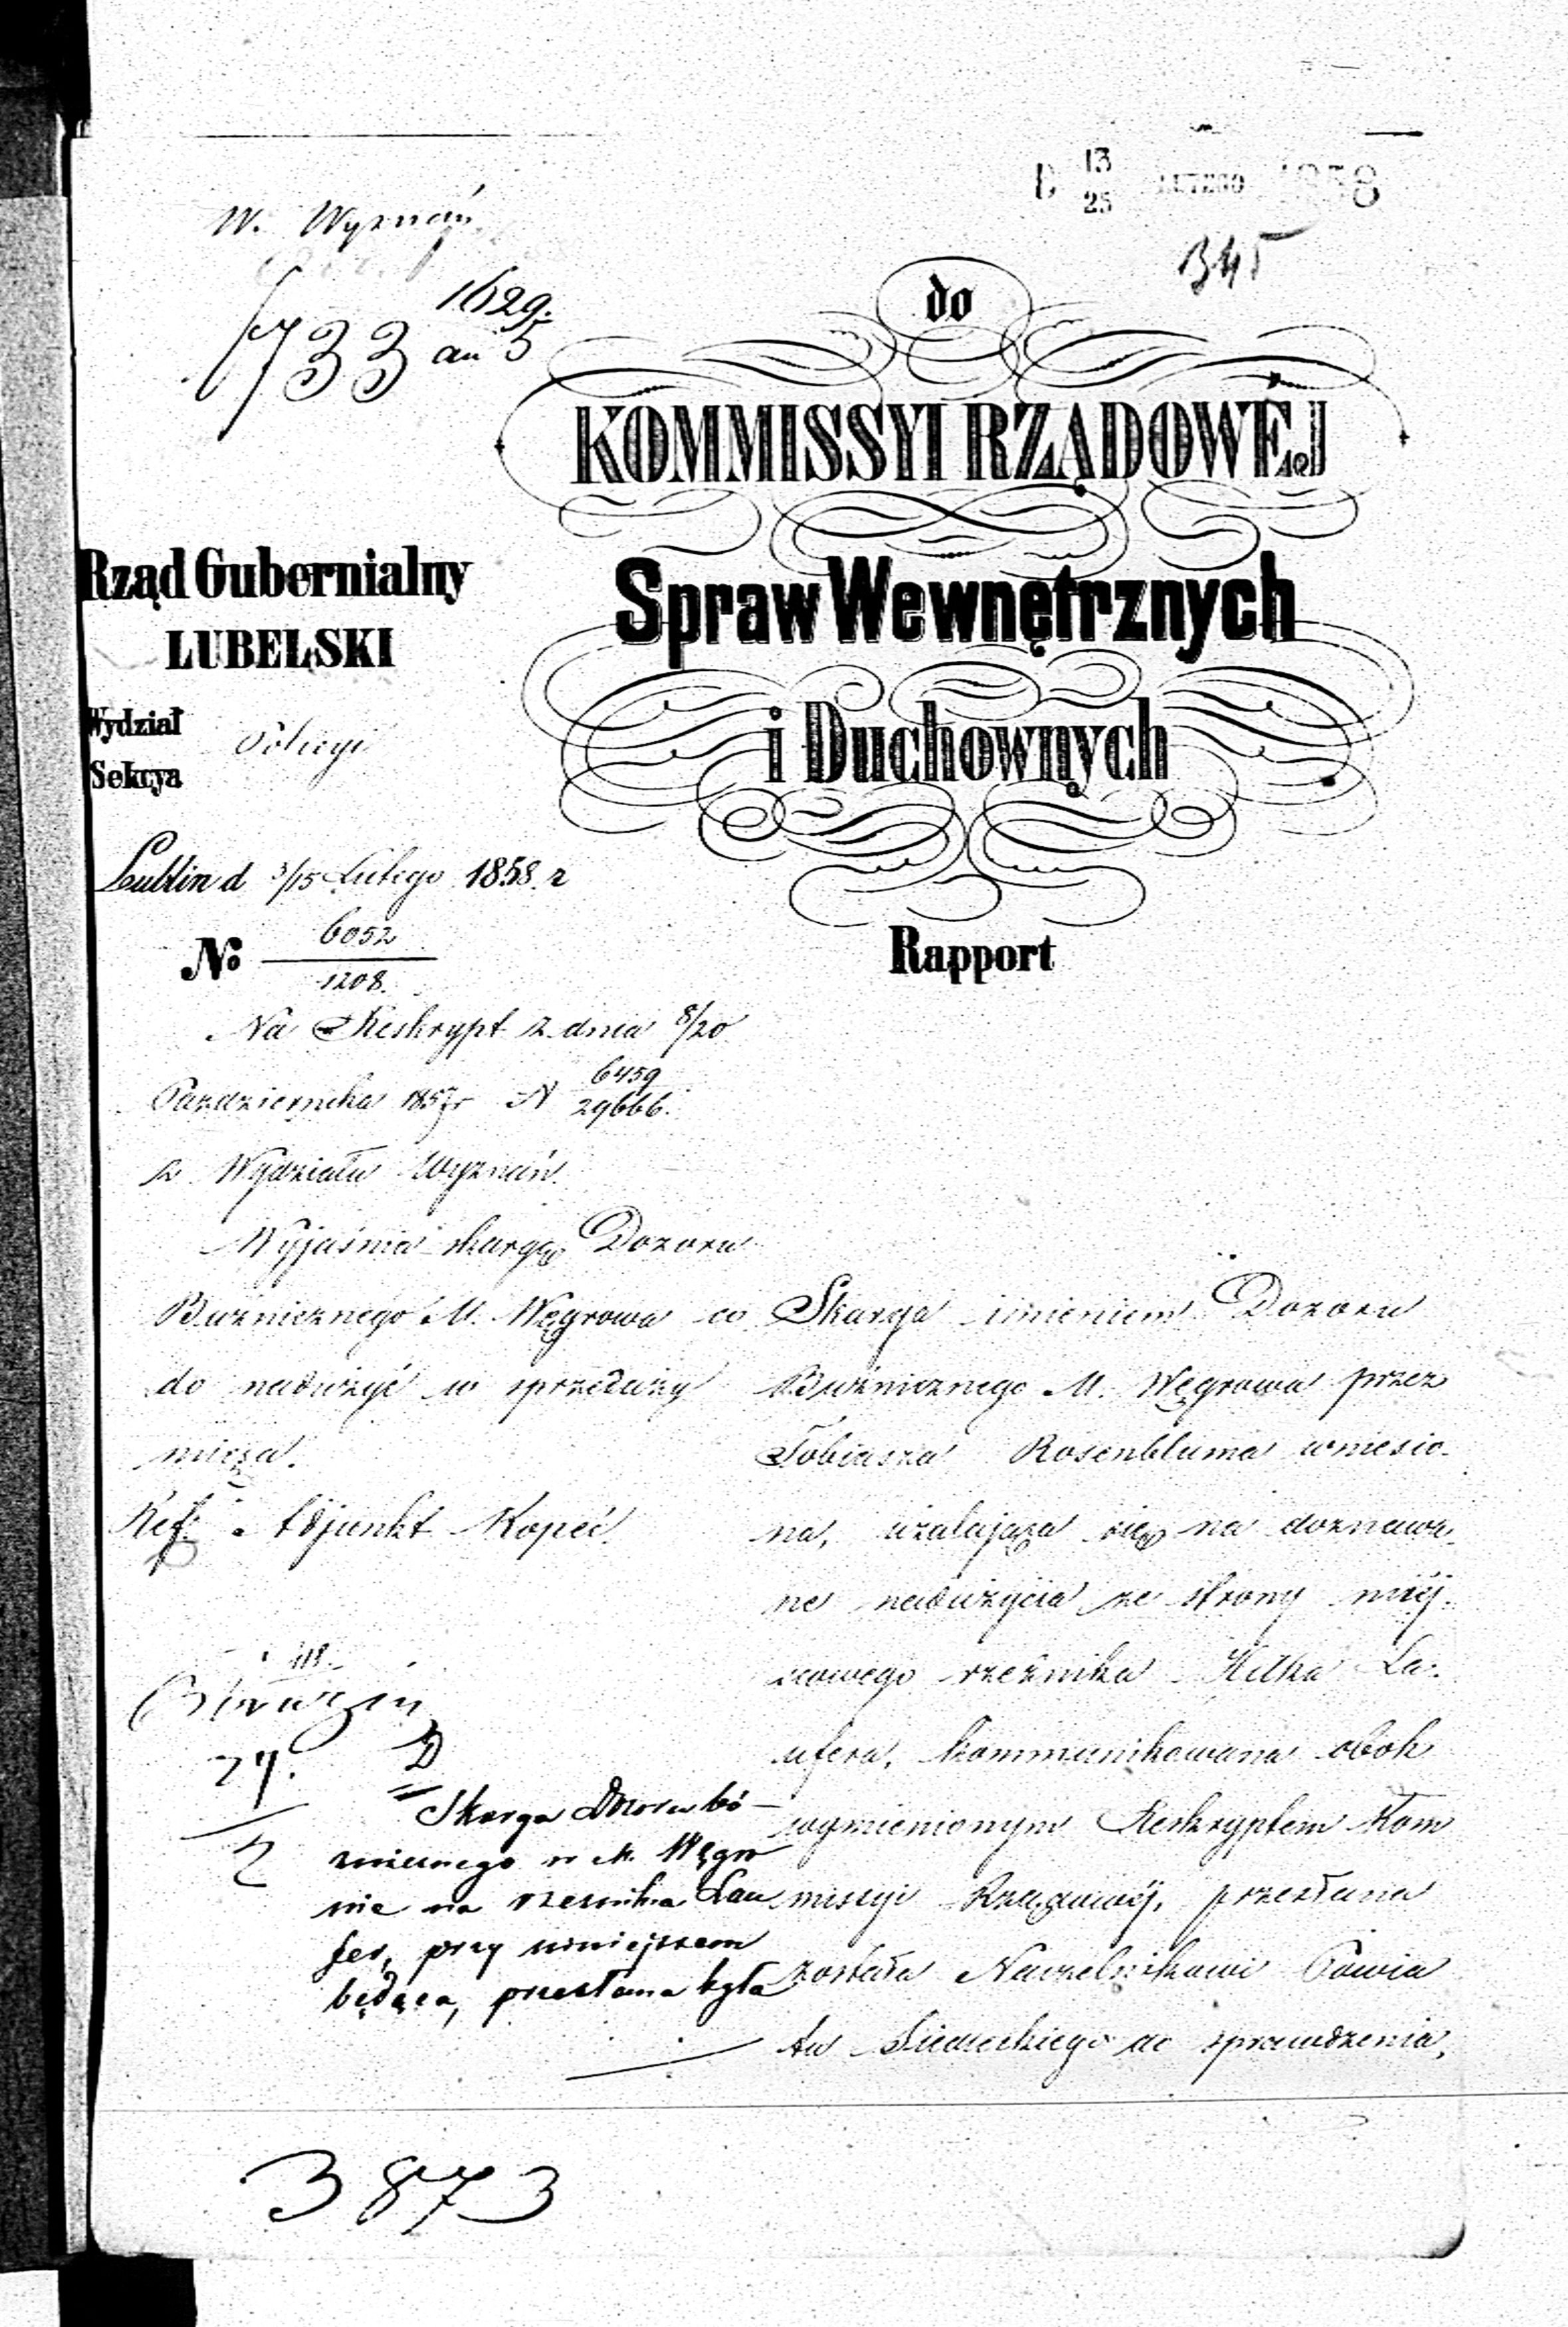 D 13/25 LUTEGO 1858
345
W. Wyznań
1733 1629. an 5
do
KOMMISSYI RZĄDOWÉJ
Spraw Wewnętrznych
i Duchownych
Rapport
Rząd Gubernialny
LUBELSKI
Wydział Policyi
Sekcya
Lublin d 3/15 Lutego 1858. r
No 6052
1208.
Na Reskrypt z dnia 8/20
Października 1857r N 6459
29666.
z Wydziału Wyznań.
Wyjaśnia skargę Dozoru
Bużnicznego M. Węgrowa co
do nadużyć w sprzedaży
mięsa.
Ref: Adjunkt Kopeć.
Skarga imieniem Dozoru
Bużnicznego M. Węgrowa przez
Tobiasza Rosenbluma wniesio-
na, użalająca się na doznawa-
ne nadużycia ze strony miéj-
scowego rzeźnika Hilka La-
ufera, kommunikowana obok
wymienionym Reskryptem Kom
missyi Rządowéj, przesłana
została Naczelnikowi Powia
tu Siedleckiego do sprawdzenia,
118.
27.
2
D
Skarga Dozoru bó-
znicznego w M. Węgro
wie na rzeznika Lau
fer, przy niniejszem
będąca, przesłana była
3873